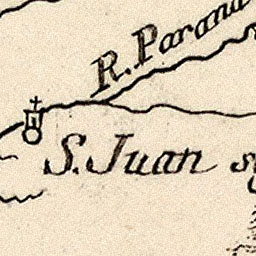 R. Parana
S. Juan